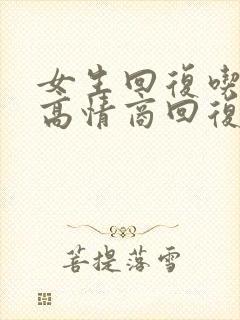 女生回復喫
高情商回復
菩提落雪